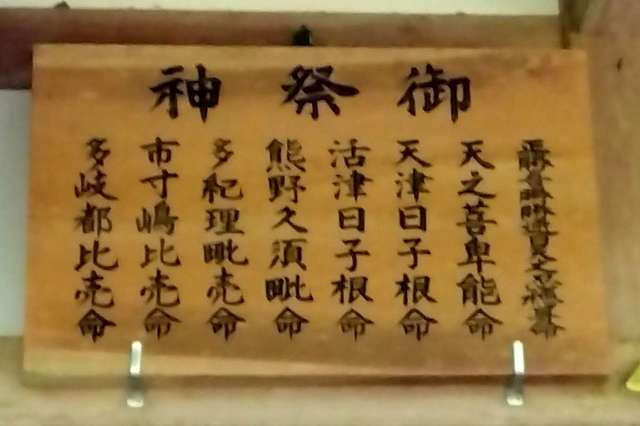 御祭神
天之菩卑能命
天津日子根命
活津日子根命
熊野久須毗命
多紀理毗売命
市寸嶋比売命
多岐都比売命